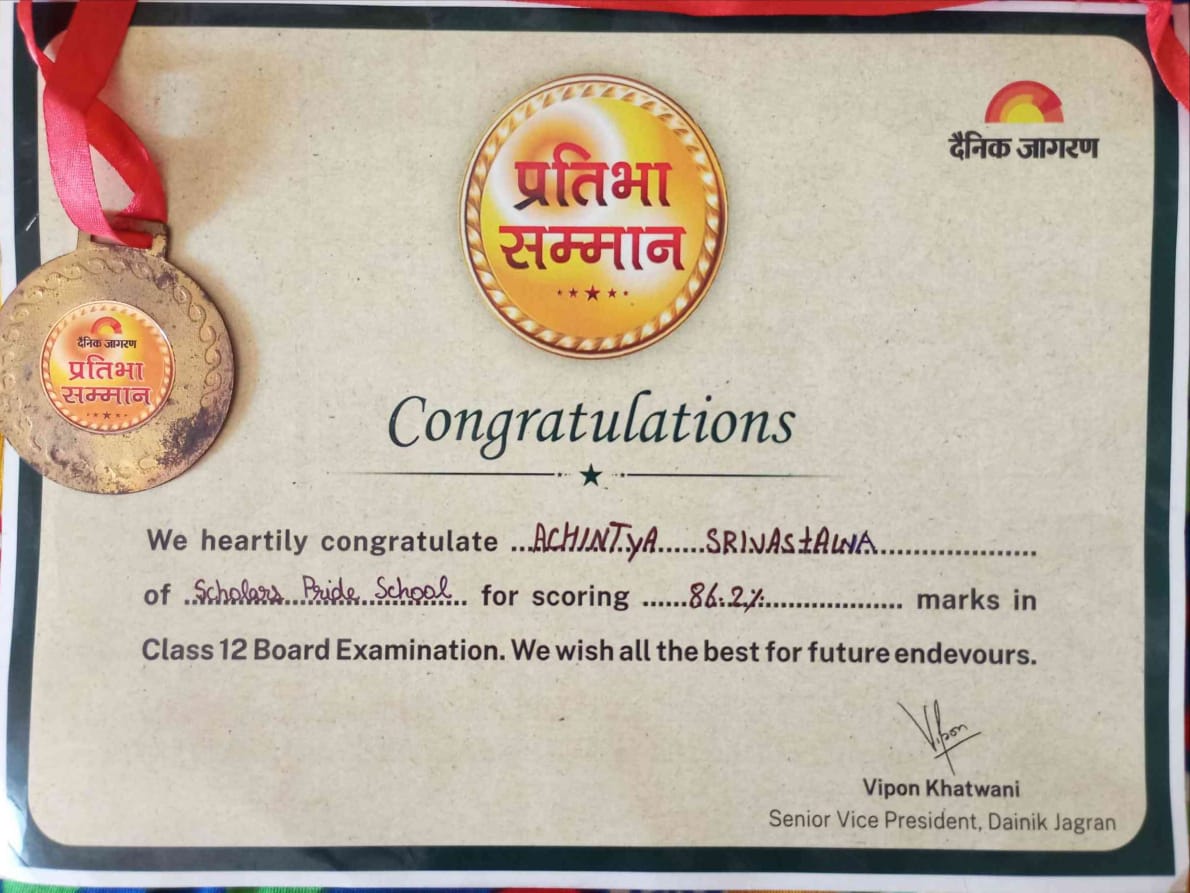 दैनिक जागरण
प्रतिभा
सम्मान
दैनिक जागरण
प्रतिभा
सम्मान
Congratulations
We heartily congratulate ...ACHINTYA......SRIVASTAWA......................
of ...Scholars Pride School... for scoring ......86.2%................... marks in
Class 12 Board Examination. We wish all the best for future endevours.
Vipon
Vipon Khatwani
Senior Vice President, Dainik Jagran